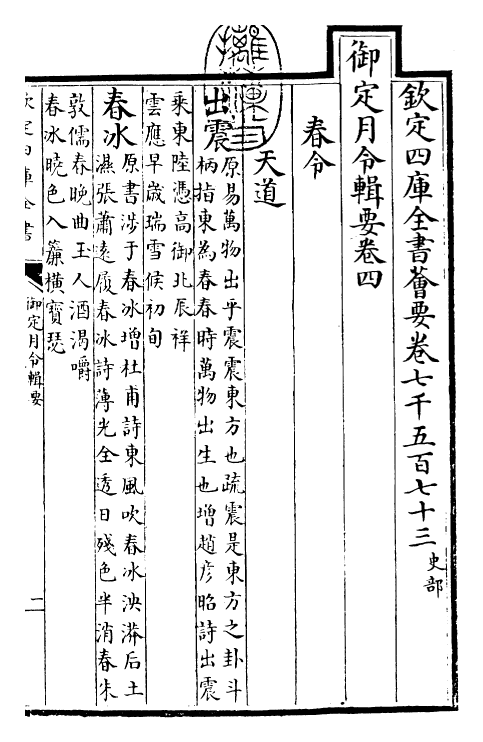 欽定四庫全書薈要卷七千五百七十三 史部
御定月令輯要卷四
春令
天道
出震 原易萬物出乎震震東方也疏震是東方之卦斗
柄指東為春春時萬物出生也增趙彥昭詩出震
乘東陸憑高御北辰祥
雲應早歲瑞雪候初旬
春冰 原書涉于春冰增杜甫詩東風吹春冰泱漭后土
濕張蕭遠履春冰詩薄光全透日殘色半消春朱
敦儒春晚曲玉人酒渴嚼
春冰曉色入簾橫寶瑟
欽定四庫全書
御定月令輯要